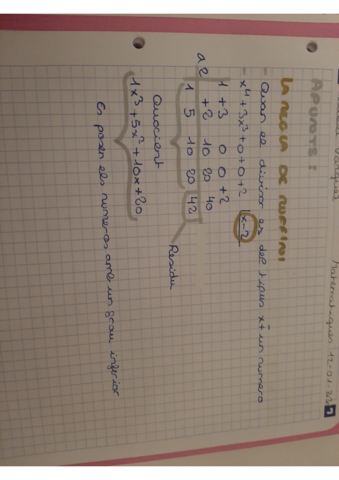 Matemàtiques 12-01-22
APUNTS:
LA REGLA DE RUFFINI
- Quan el divisor es del tipus x ± un numero
- x⁴ + 3x³ + 0 + 0 + 2 |x-2
1 +3 0 0 +2
a 2 +2 10 20 40
1 5 10 20 42
Quocient Residu
1x³ + 5x² + 10x + 20
Es posen els numeros amb un grau inferior